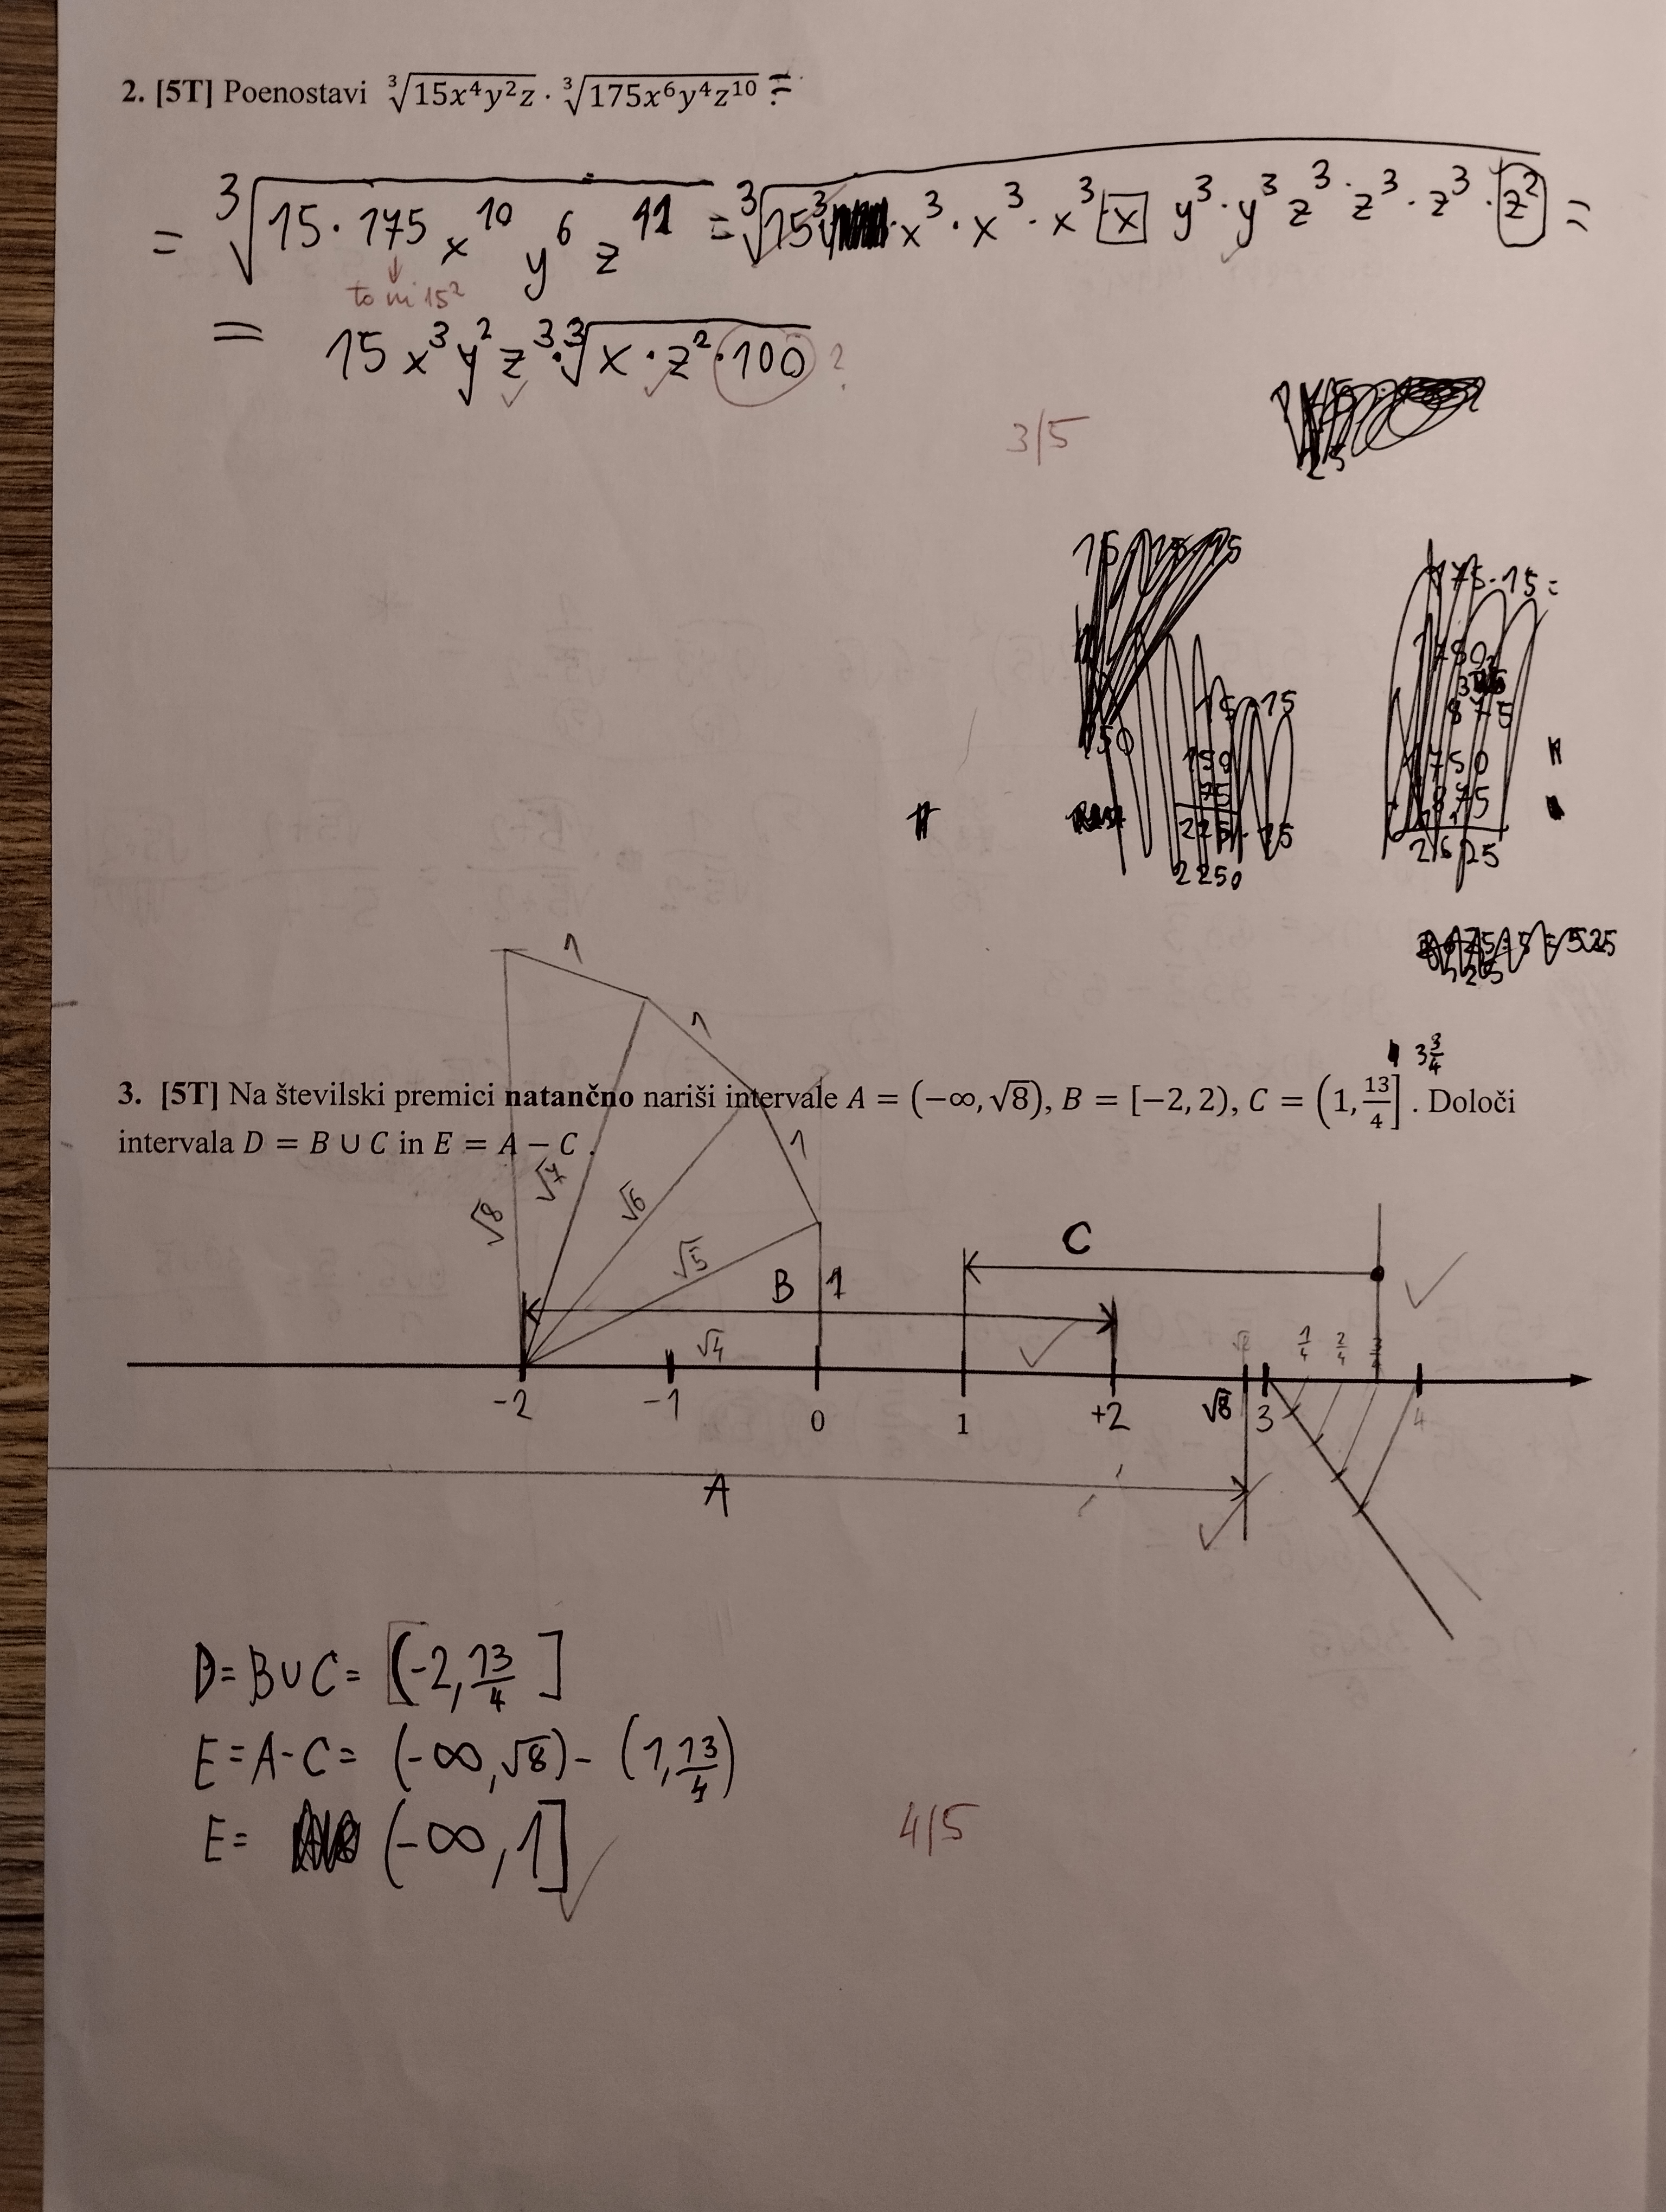 2. [5T] Poenostavi ∛15x⁴y²z · ∛175x⁶y⁴z¹⁰ =
= ∛15·175 x¹⁰ y⁶ z¹¹ = ∛15³ · x³ · x³ · x³ · x y³ · y³ z³ · z³ · z³ · z² =
to ni 15²
= 15 x³ y² z³ · ∛x · z² · 100 ?
3/5
15 15
175·15=
150
15 15
150
75
1750
875
225
2250
2625
525
1
1
3 3/4
3. [5T] Na številski premici natančno nariši intervale A = (−∞, √8), B = [−2, 2), C = (1, 13/4] . Določi
intervala D = B ∪ C in E = A − C .
1
√8 √7 √6 √5
C
B 1
√4
√8 1/4 2/4 3/4
-2 -1 0 1 +2 √8 3 4
A
D = B∪C = [-2, 13/4 ]
E = A-C = (-∞, √8) - (1, 13/4)
E = (-∞, 1]
4/5